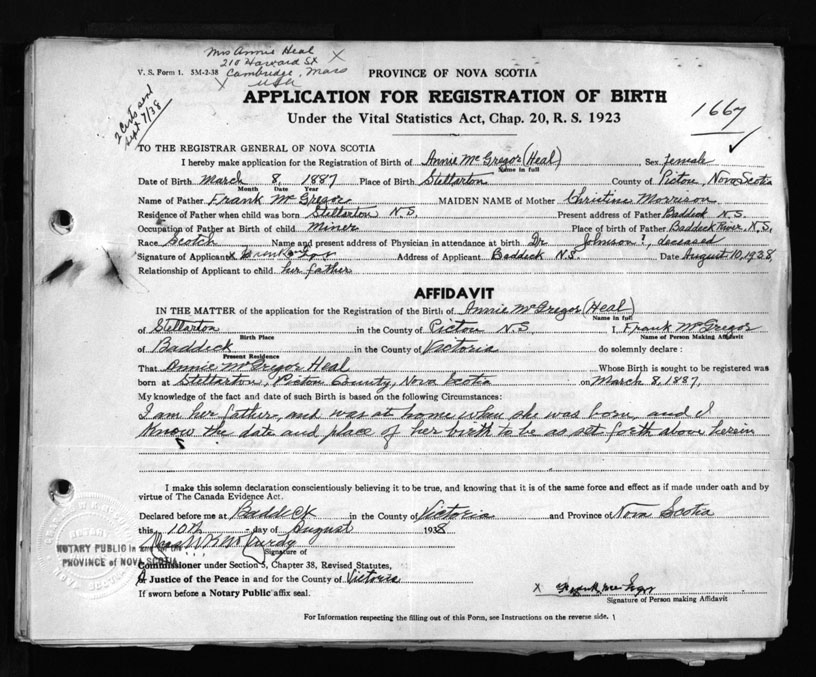 Mrs Annie Heal X
210 Harvard St
V. S. Form 1. 5M-2-38 Cambridge, Mass
X USA
2 Certs send
Sept 7/38
PROVINCE OF NOVA SCOTIA
APPLICATION FOR REGISTRATION OF BIRTH
Under the Vital Statistics Act, Chap. 20, R. S. 1923
1667
TO THE REGISTRAR GENERAL OF NOVA SCOTIA
I hereby make application for the Registration of Birth of Annie McGregor (Heal) Sex female
Name in full
Date of Birth March 8, 1887 Place of Birth Stellarton County of Pictou, Nova Scotia
Month Date Year
Name of Father Frank McGregor MAIDEN NAME of Mother Christina Morrison
Residence of Father when child was born Stellarton N.S. Present address of Father Baddeck N.S.
Occupation of Father at Birth of child Miner Place of birth of Father Baddeck River, N.S.
Race Scotch Name and present address of Physician in attendance at birth Dr. Johnson?, deceased
Signature of Applicant X Address of Applicant Baddeck N.S. Date August 10, 1938
Relationship of Applicant to child her father
AFFIDAVIT
IN THE MATTER of the application for the Registration of the Birth of Annie McGregor (Heal)
Name in full
of Stellarton in the County of Pictou N.S. I, Frank McGregor
Birth Place Name of Person Making Affidavit
of Baddeck in the County of Victoria do solemnly declare :
Present Residence
That Annie McGregor Heal Whose Birth is sought to be registered was
born at Stellarton, Pictou County, Nova Scotia on March 8, 1887,
My knowledge of the fact and date of such Birth is based on the following Circumstances:
I am her father and was at home when she was born, and I
know the date and place of her birth to be as set forth above herein
I make this solemn declaration conscientiously believing it to be true, and knowing that it is of the same force and effect as if made under oath and by
virtue of The Canada Evidence Act.
Declared before me at Baddeck in the County of Victoria and Province of Nova Scotia
this 10th day of August 1938
McCurdy
NOTARY PUBLIC in and for the
Signature of
PROVINCE of NOVA SCOTIA
Commissioner under Section 5, Chapter 38, Revised Statutes,
A Justice of the Peace in and for the County of Victoria
If sworn before a Notary Public affix seal.
X Frank McGregor
Signature of Person making Affidavit
For Information respecting the filling out of this Form, see Instructions on the reverse side.